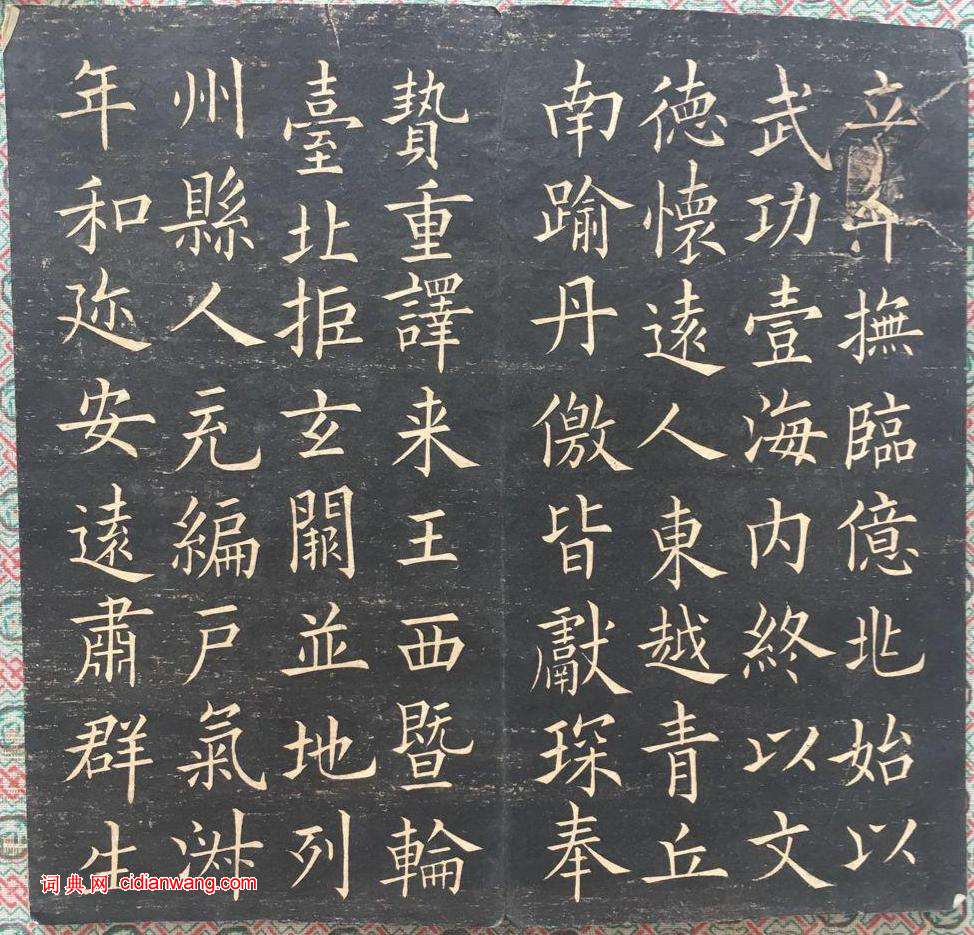 立年撫臨億兆始以
武功壹海内終以文
德懷遠人東越青丘
南踰丹儌皆獻琛奉
贄重譯来王西暨輪
臺北拒玄闕並地列
州縣人充編戶氣淑
年和迩安遠肅群生
词典网 cidianwang.com